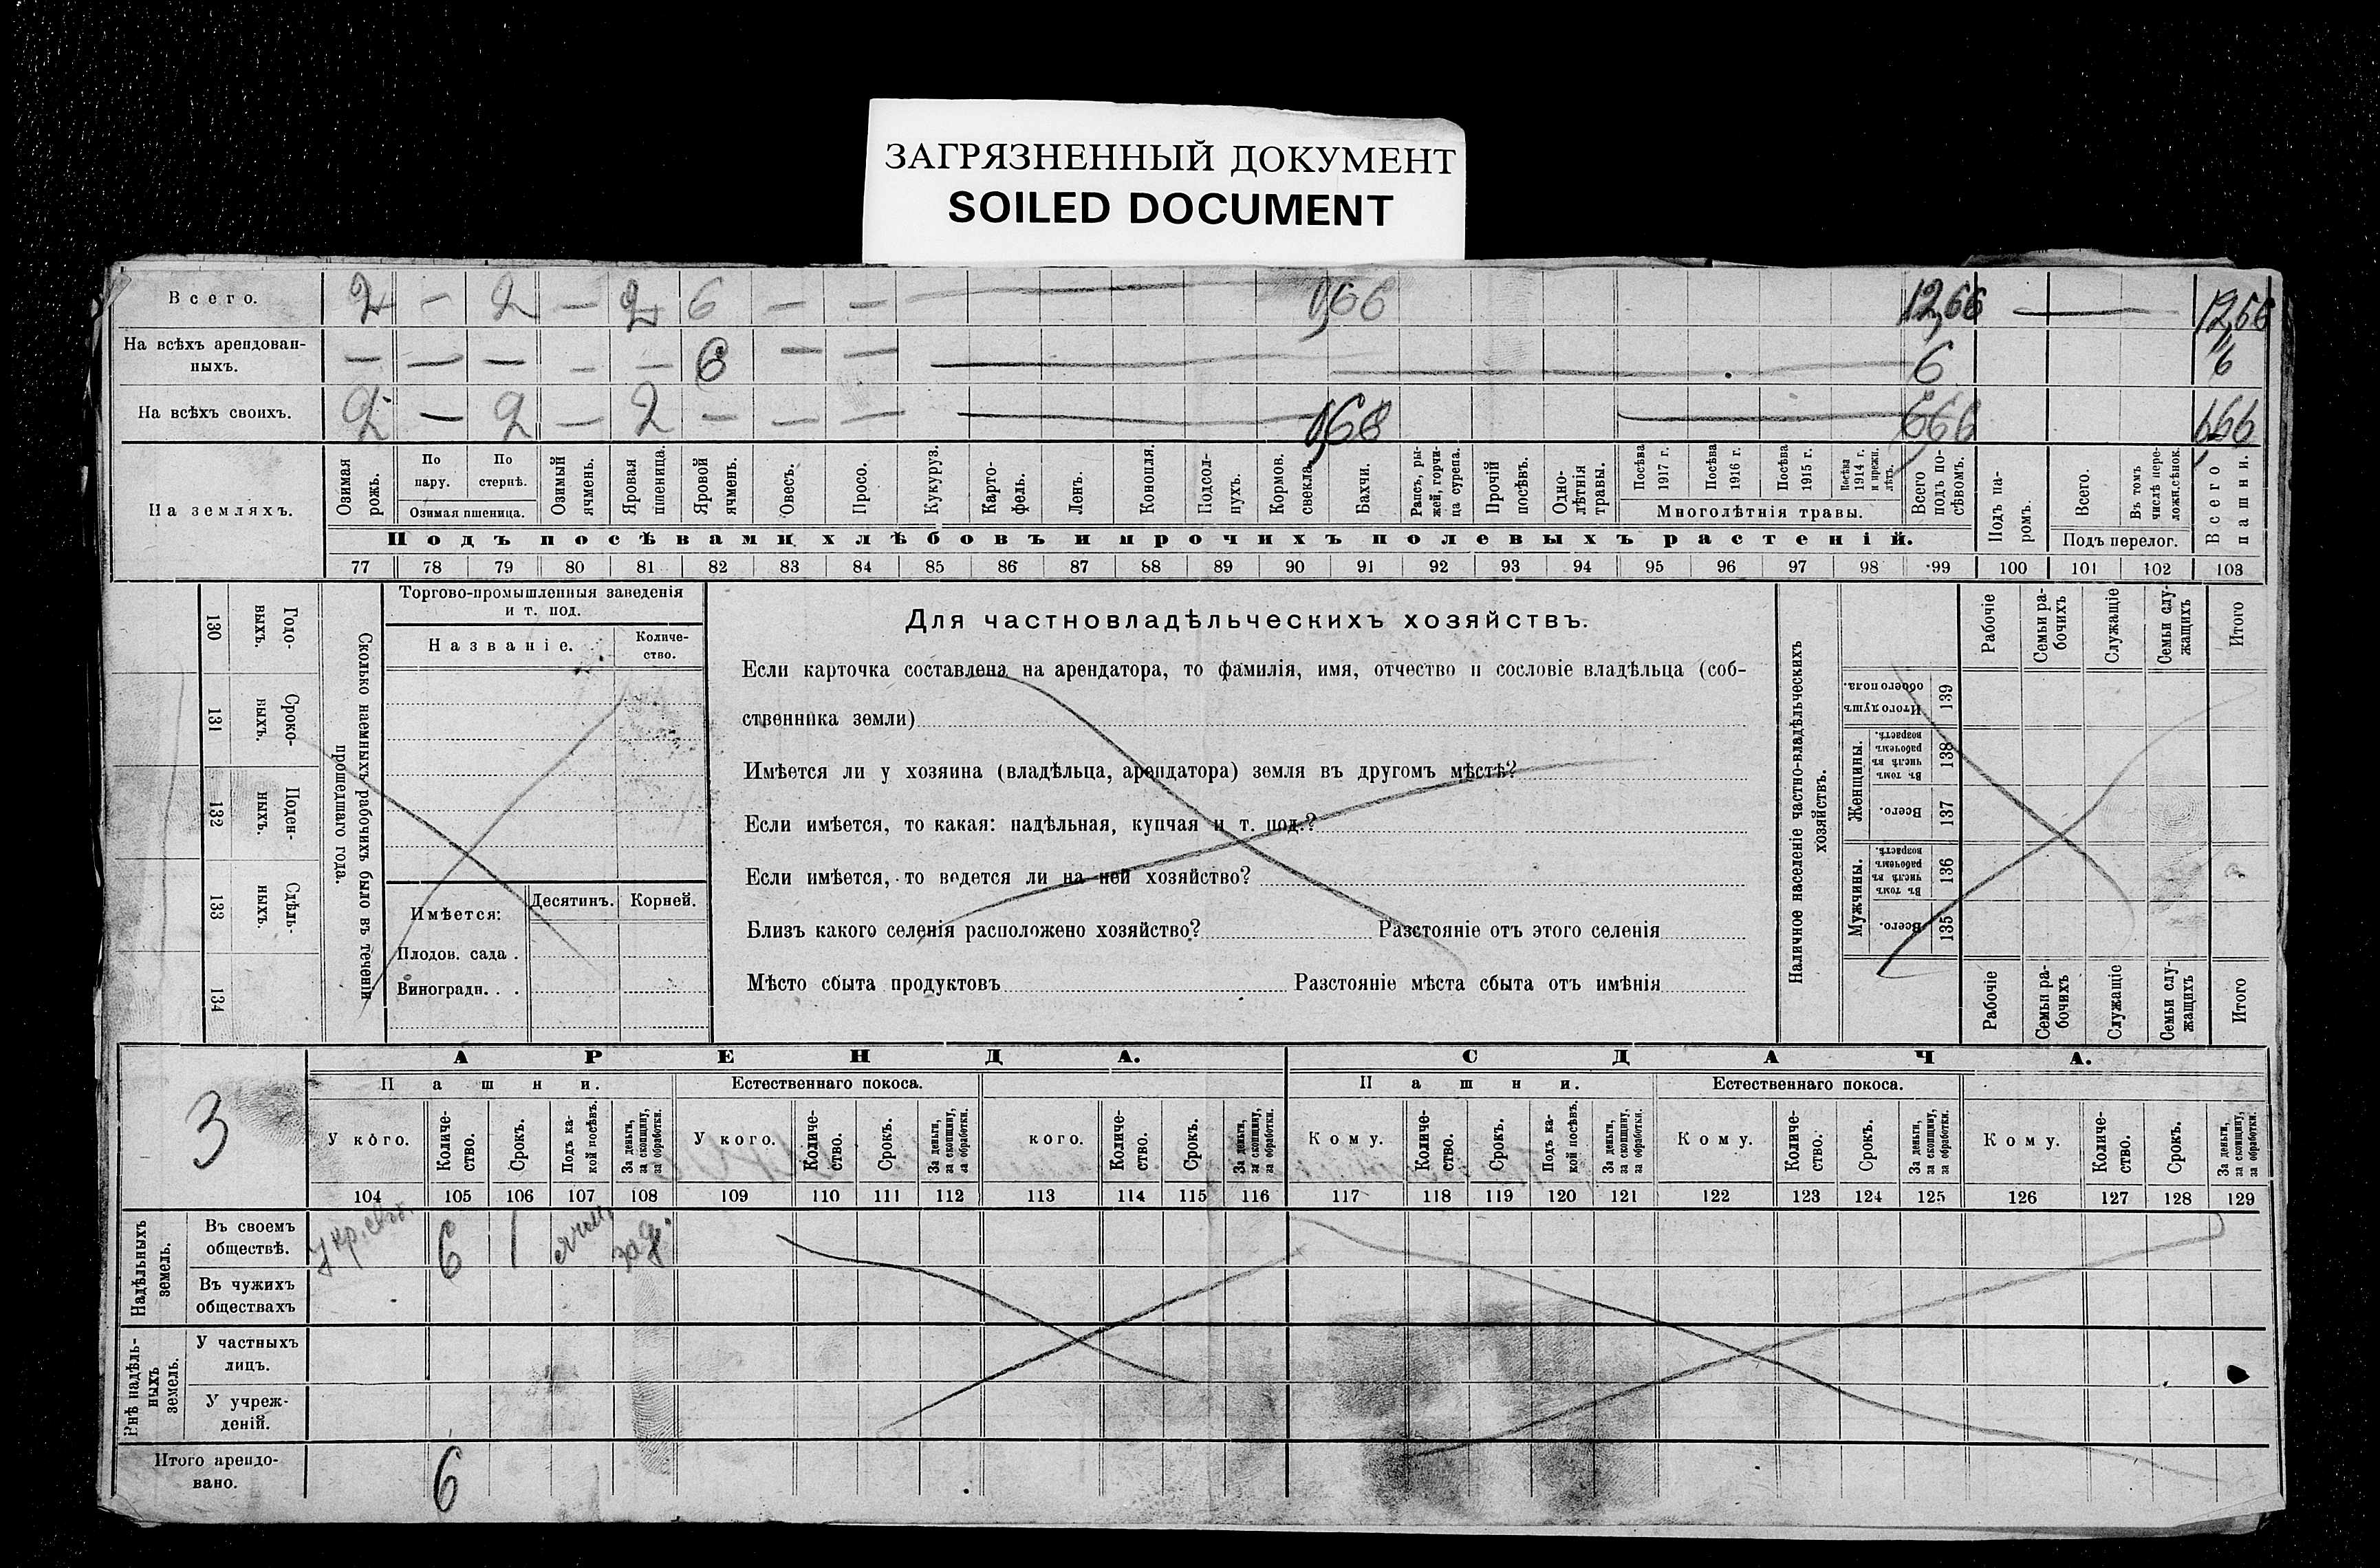 ЗАГРЯЗНЕННЫЙ ДОКУМЕНТ
SOILED DOCUMENT
Всего. 2 — 2 — 2 6 — — — 1,66 12,66 — 12,66
На всѣхъ арендован-
ныхъ. — — — — — 6 — — — — 6 6
На всѣхъ своихъ. 2 — 2 — 2 — — — — 1,66 — 6,66 6,66
На земляхъ.
Озимая рожь.
По пару.
По стернѣ.
Озимая пшеница.
Озимый ячмень.
Яровая пшеница.
Яровой ячмень.
Овесъ.
Просо.
Кукуруз.
Карто-
фель.
Ленъ.
Конопля.
Подсол-
нухъ.
Кормов. свекла.
Бахчи.
Рапсъ, ры-
жей, горчи-
ца сурепа.
Прочій посѣвъ.
Одно-
лѣтнія травы.
Посѣва 1917 г.
Посѣва 1916 г.
Посѣва 1915 г.
Посѣва 1914 г. и прежн. лѣтъ.
Многолѣтнія травы.
Всего подъ по-
сѣвомъ.
Подъ па-
ромъ.
Всего.
Въ томъ числѣ пере-
ложн. сѣнок.
Подъ перелог.
Всего пашни.
Подъ посѣвами хлѣбовъ и прочихъ полевыхъ растеній.
77 78 79 80 81 82 83 84 85 86 87 88 89 90 91 92 93 94 95 96 97 98 99 100 101 102 103
130 Годо-
выхъ.
131 Сроко-
ныхъ.
132 Поден-
ныхъ.
133 Сдѣль-
ныхъ.
134
Сколько наемныхъ рабочихъ было въ теченіи
прошедшаго года.
Торгово-промышленныя заведенія
и т. под.
Названіе.
Количе-
ство.
Имѣется:
Десятинъ. Корней.
Плодов. сада .
Виноградн. . .
Для частновладѣльческихъ хозяйствъ.
Если карточка составлена на арендатора, то фамилія, имя, отчество и сословіе владѣльца (соб-
ственника земли)
Имѣется ли у хозяина (владѣльца, арендатора) земля въ другомъ мѣстѣ?
Если имѣется, то какая: надѣльная, купчая и т. под.?
Если имѣется, то ведется ли на ней хозяйство?
Близъ какого селенія расположено хозяйство? Разстояніе отъ этого селенія
Мѣсто сбыта продуктовъ Разстояніе мѣста сбыта отъ имѣнія
Наличное населеніе частно-владѣльческихъ
хозяйствъ.
Рабочіе
Семьи ра-
бочихъ
Служащіе
Семьи слу-
жащихъ
Итого
Итого душъ обоего пола. 139
Женщины.
Въ томъ числѣ въ рабочемъ возрастѣ. 138
Всего. 137
Мужчины.
Въ томъ числѣ въ рабочемъ возрастѣ. 136
Всего. 135
Рабочіе
Семьи ра-
бочихъ
Служащіе
Семьи слу-
жащихъ
Итого
3
АРЕНДА. СДАЧА.
Пашни. Естественнаго покоса. Пашни. Естественнаго покоса.
У кого. Количе-
ство. Срокъ. Подъ ка-
кой посѣвъ. За деньги,
за скопщину,
за обработки.
У кого. Количе-
ство. Срокъ. За деньги,
за скопщину,
за обработки.
кого. Количе-
ство. Срокъ. За деньги,
за скопщину,
за обработки.
Кому. Количе-
ство. Срокъ. Подъ ка-
кой посѣвъ. За деньги,
за скопщину,
за обработки.
Кому. Количе-
ство. Срокъ. За деньги,
за скопщину,
за обработки.
Кому. Количе-
ство. Срокъ. За деньги,
за скопщину,
за обработки.
104 105 106 107 108 109 110 111 112 113 114 115 116 117 118 119 120 121 122 123 124 125 126 127 128 129
Надѣльныхъ
земель.
Въ своемъ
обществѣ. 6 1 ячм. за д.
Въ чужихъ
обществахъ
Внѣ надѣль-
ныхъ
земель.
У частныхъ
лицъ.
У учреж-
деній.
Итого арендо-
вано. 6